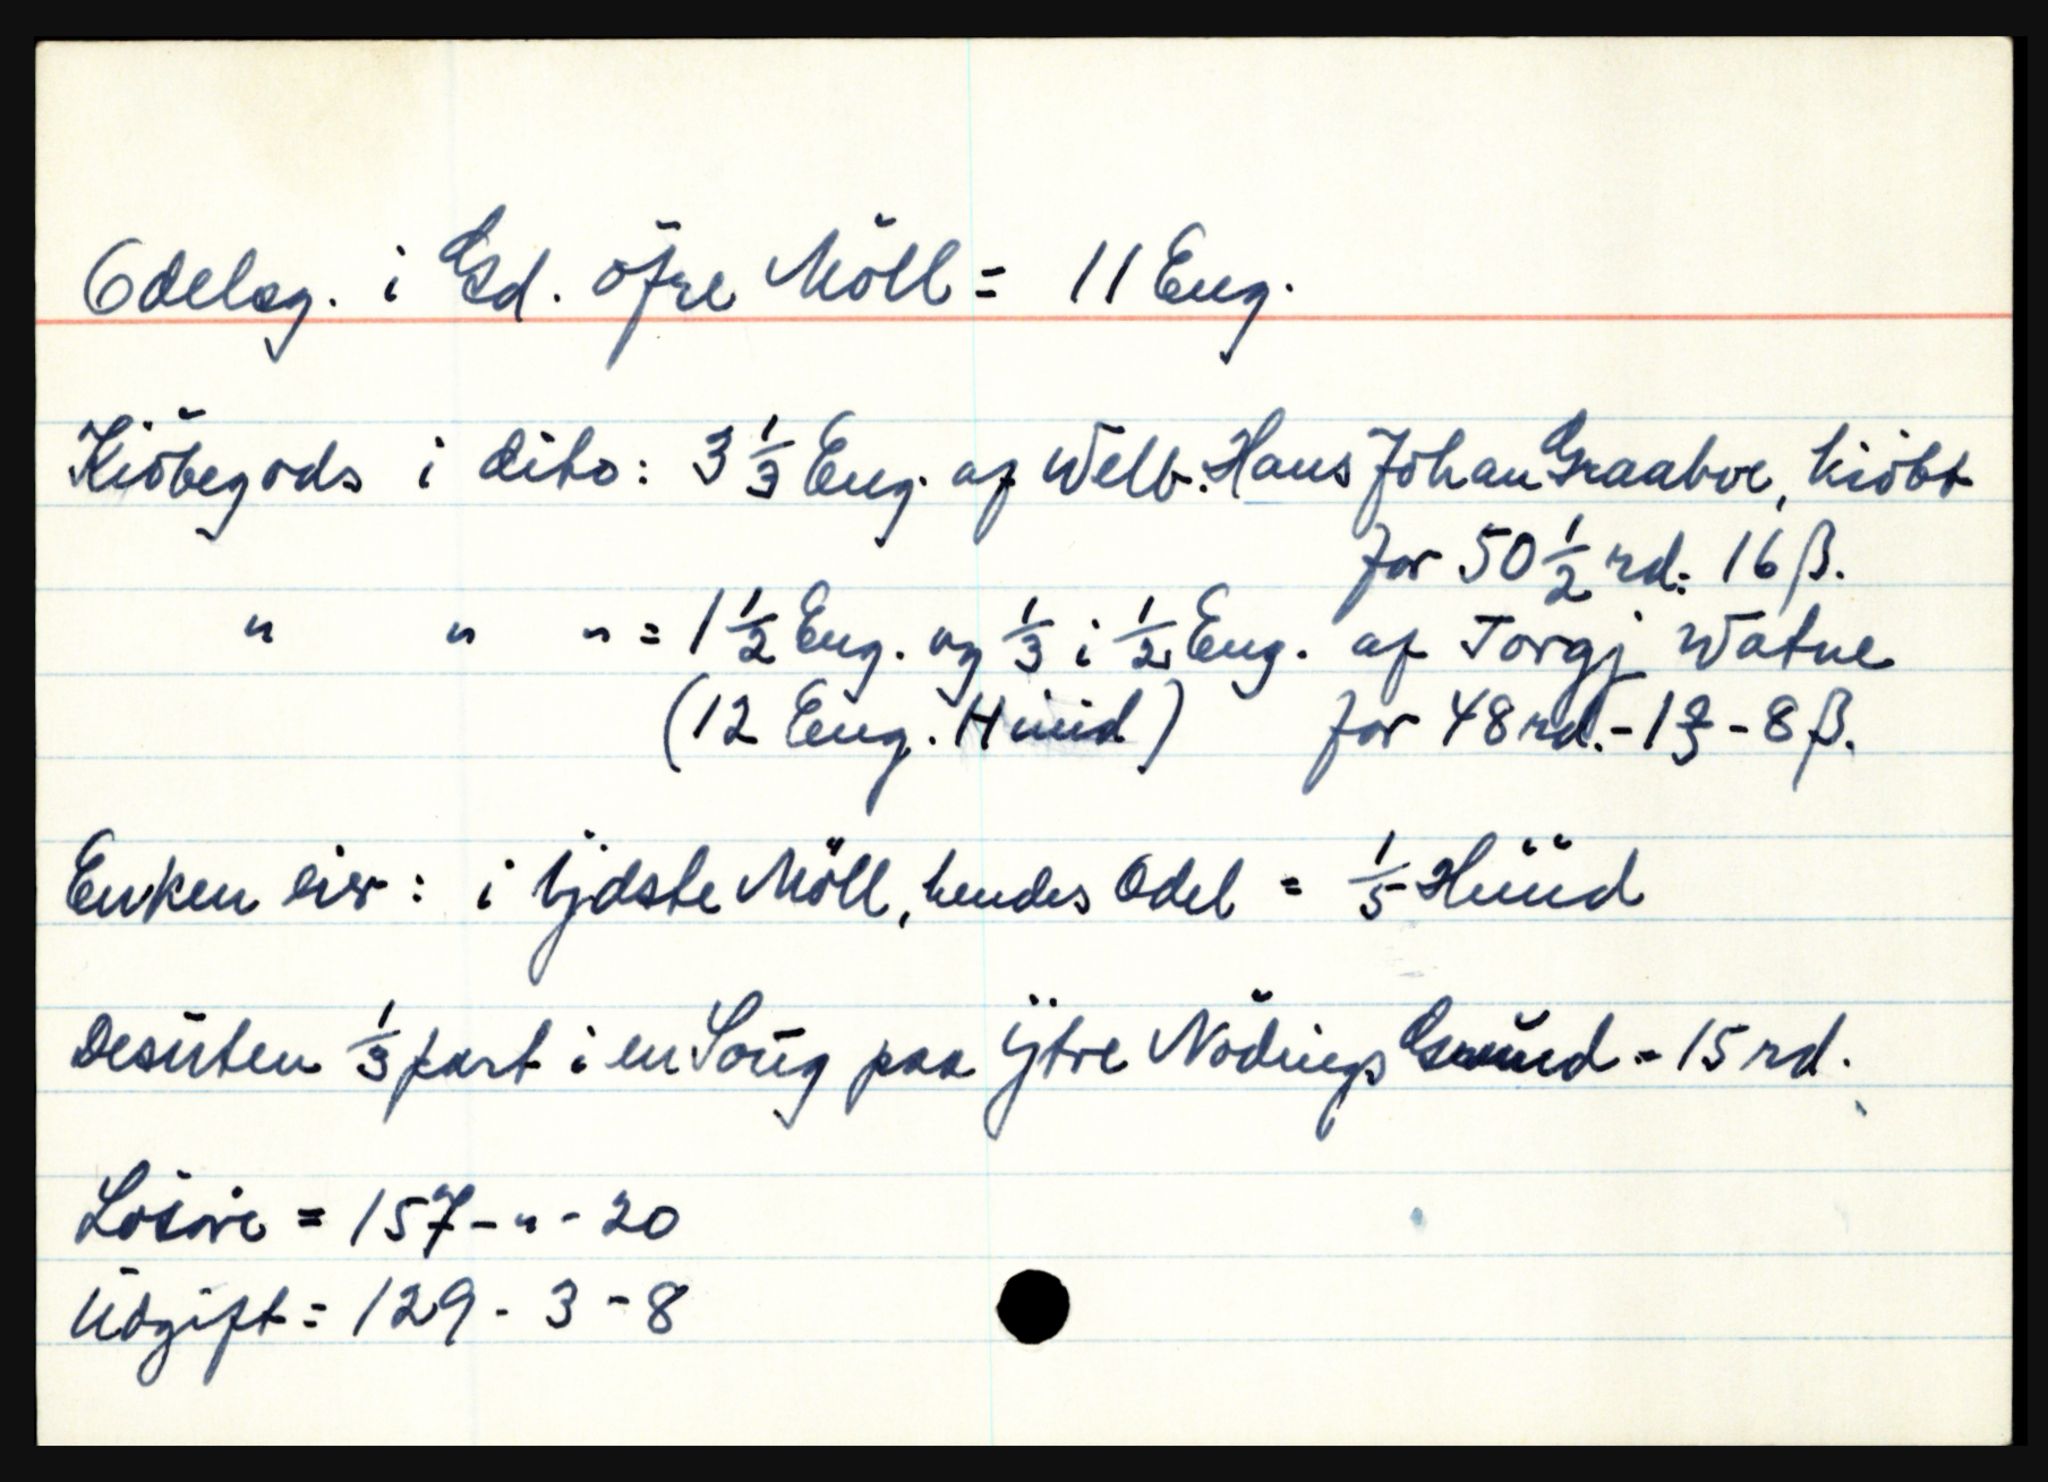 Odelsg. i Gd. öfre Möll = 11 Eng.
Kiöbegods i dito: 3 1/3 Eng. af Welb. Hans Johan Graaboe, kiöbt
for 50 1/2 rd: 16 β.
" " " = 1 1/2 Eng. og 1/3 i 1/2 Eng. af Torgj Watne
(12 Eng. Huud) for 48 rd. - 1 ꝫ - 8 β.
Enken eier: i ijdste Möll, hendes Odel = 1/5 Hüüd
Desuten 1/3 part i en Saug paa ÿtre Nödings Grund - 15 rd.
Losöre = 157 - " - 20
Udgift = 129 - 3 - 8